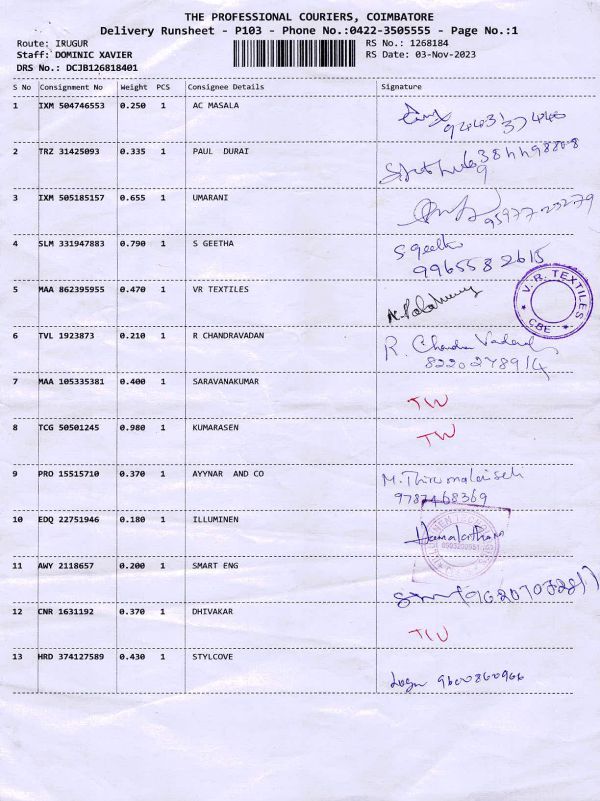 THE PROFESSIONAL COURIERS, COIMBATORE
Delivery Runsheet - P103 - Phone No.:0422-3505555 - Page No.:1
Route: IRUGUR RS No.: 1268184
Staff: DOMINIC XAVIER RS Date: 03-Nov-2023
DRS No.: DCJB126818401
S No Consignment No Weight PCS Consignee Details Signature
1 IXM 504746553 0.250 1 AC MASALA
2 TRZ 31425093 0.335 1 PAUL DURAI
3 IXM 505185157 0.655 1 UMARANI
4 SLM 331947883 0.790 1 S GEETHA S geetha
9965582615
5 MAA 862395955 0.470 1 VR TEXTILES
V.R. TEXTILES
CBE
6 TVL 1923873 0.210 1 R CHANDRAVADAN R. Chandra Vadan
8220278914
7 MAA 105335381 0.400 1 SARAVANAKUMAR TW
8 TCG 50501245 0.980 1 KUMARASEN TW
9 PRO 15515710 0.370 1 AYYNAR AND CO
9787468369
10 EDQ 22751946 0.180 1 ILLUMINEN
11 AWY 2118657 0.200 1 SMART ENG
12 CNR 1631192 0.370 1 DHIVAKAR TW
13 HRD 374127589 0.430 1 STYLCOVE 9600860966